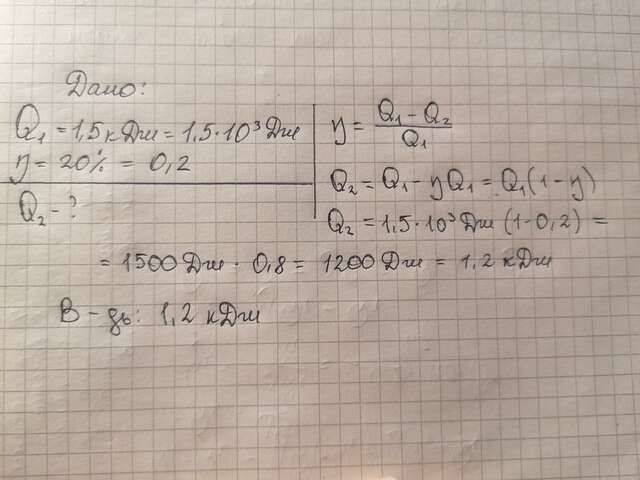 Дано:
Q₁ = 1,5 кДж = 1,5·10³ Дж
η = 20% = 0,2
Q₂ - ?
η = (Q₁ - Q₂)/Q₁
Q₂ = Q₁ - ηQ₁ = Q₁(1-η)
Q₂ = 1,5·10³ Дж (1-0,2) =
= 1500 Дж · 0,8 = 1200 Дж = 1,2 кДж
В-дь: 1,2 кДж